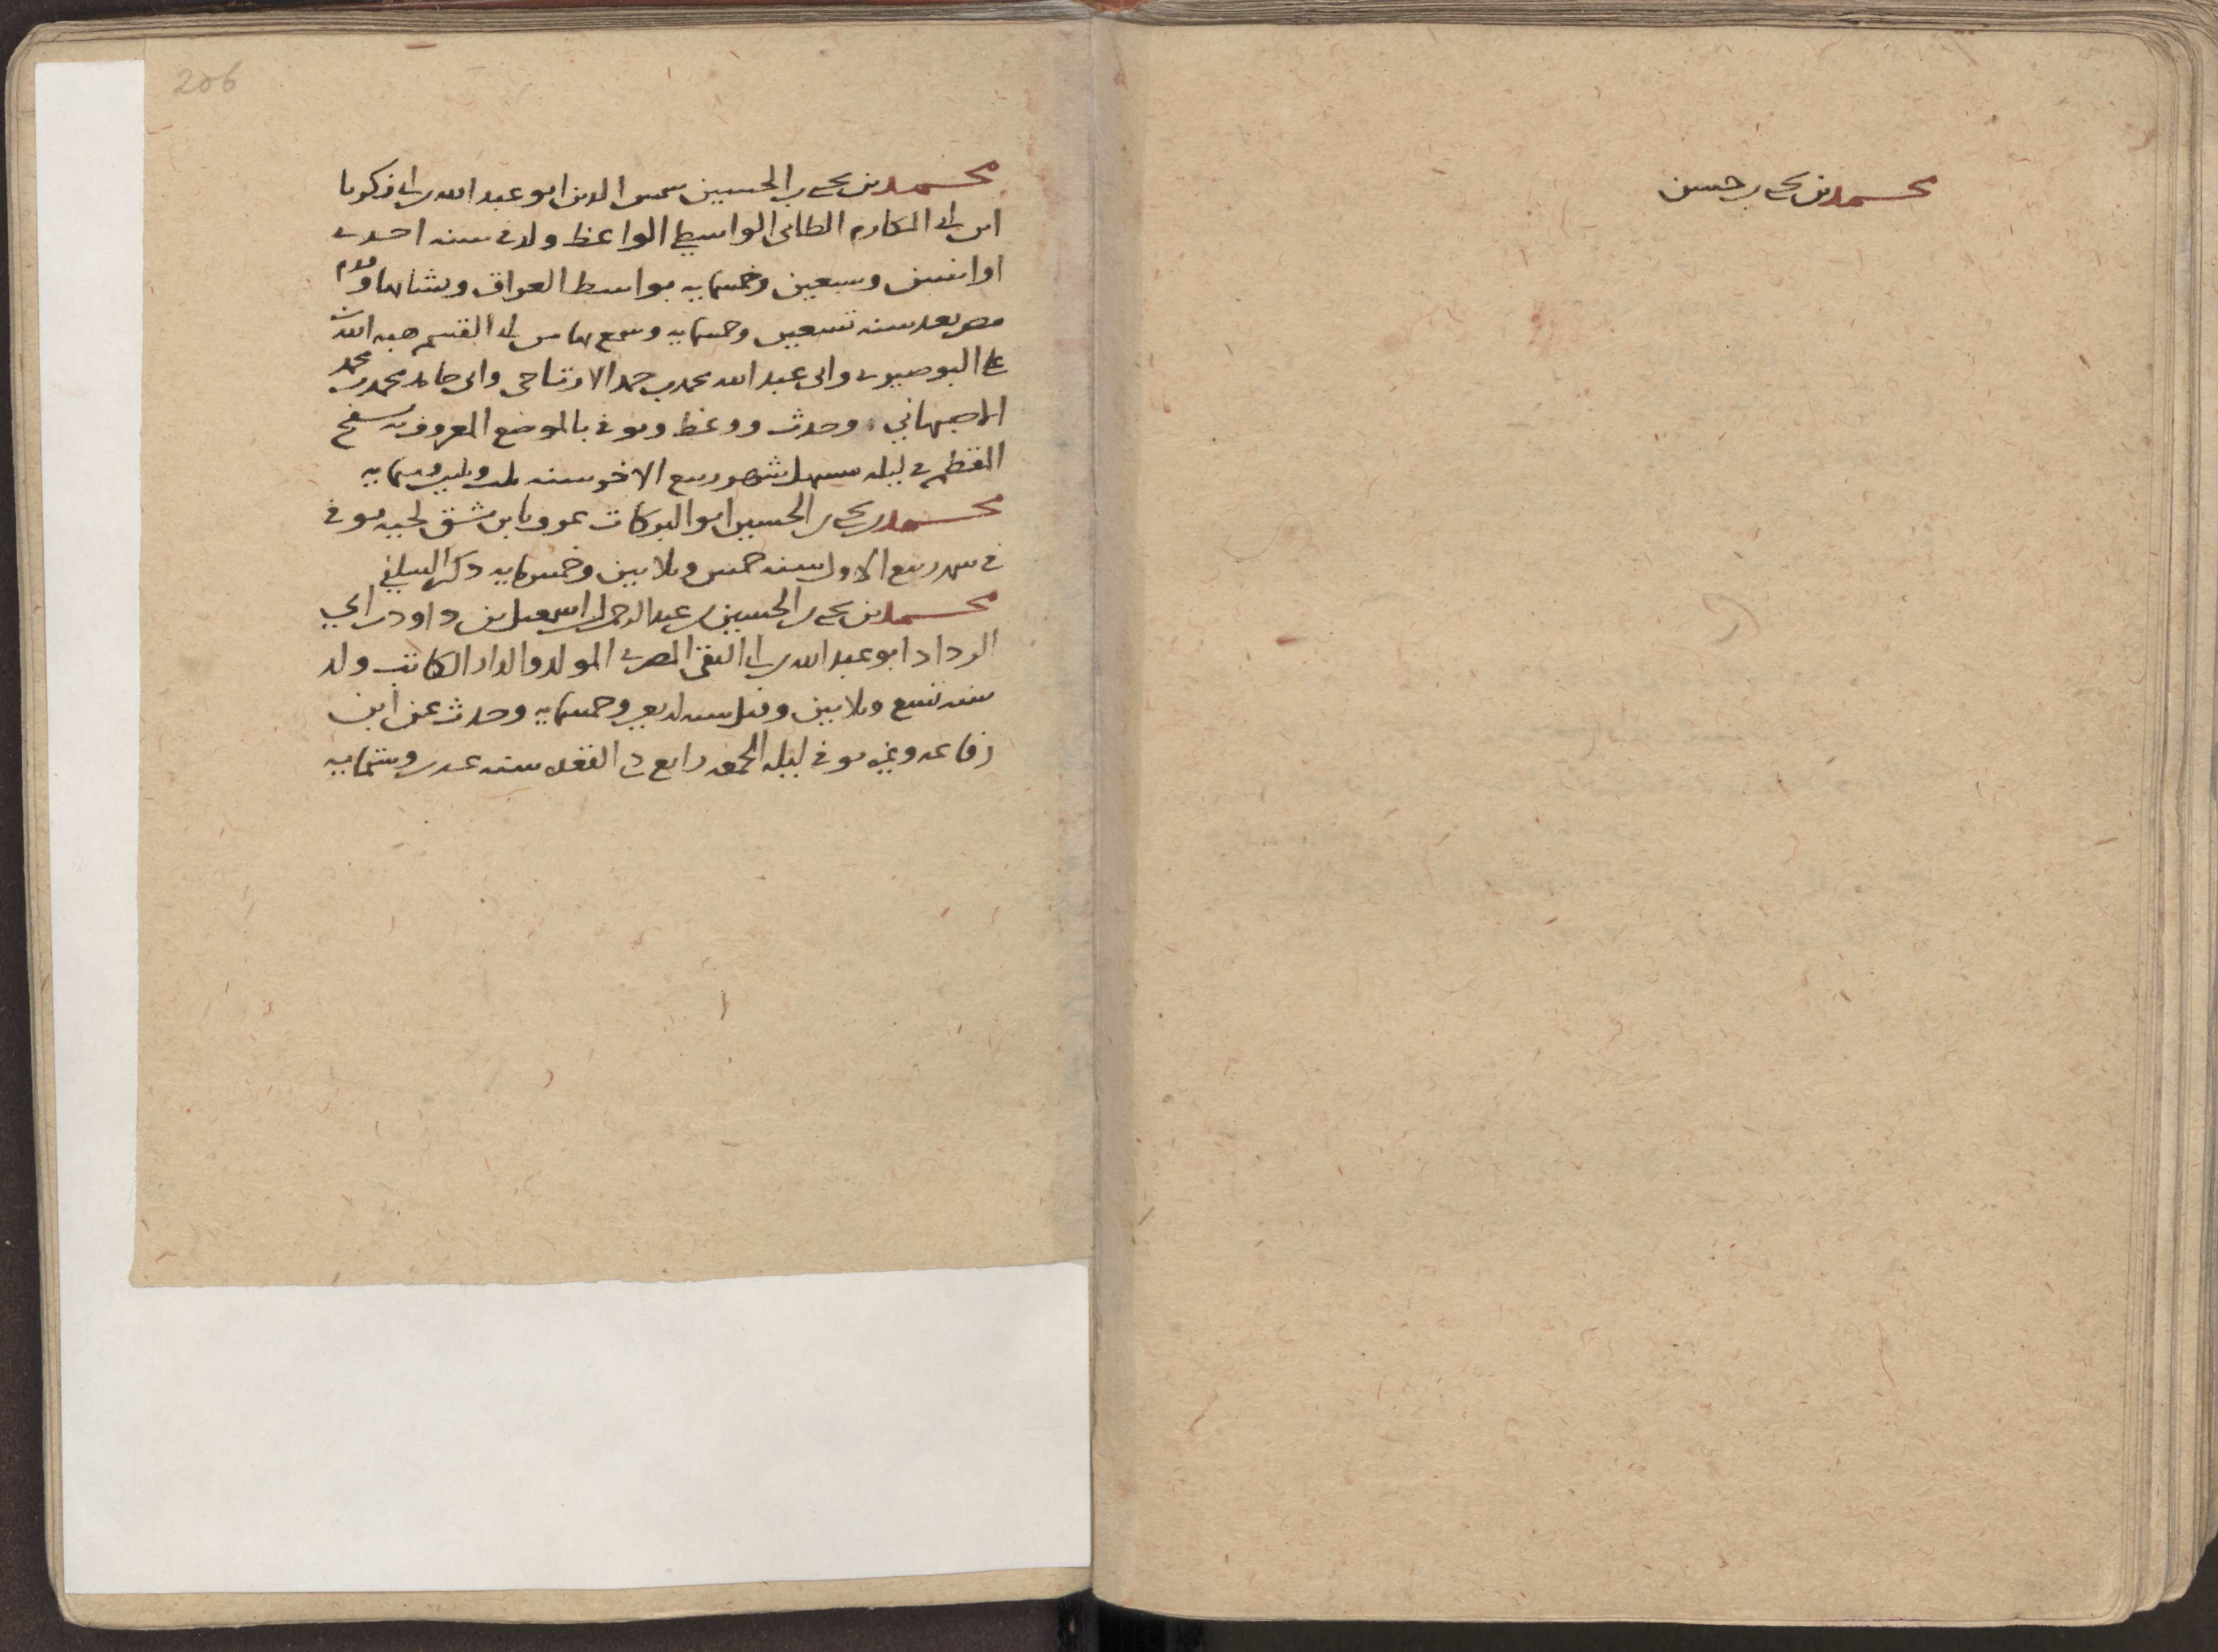 محمد بن يحيى بن حسن
206
محمد بن يحيى بن الحسين شمس الدين ابو عبد الله بن ابى زكريا
ابن ابى المكارم الطائى الواسطي الواعظ ولد فى سنه احدى
او اثنتين وسبعين وخمسمايه بواسط العراق ونشا بها وقدم
مصر بعد سنه تسعين وخمسمايه وسمع بها من ابى القسم هبه الله بن
على البوصيرى وابى عبد الله محمد بن حمد الارتاحى وابى حامد محمد بن محمد
الاصبهاني وحدث ووعظ وتوفى بالموضع المعروف به سفح
المقطم فى ليله مستهل شهر ربيع الاخر سنه ثلث وثلثين وستمايه
محمد بن يحيى بن الحسين ابو البركات عرف بابن شق لحيه توفى
فى شهر ربيع الاول سنه خمس وثلاثين وخمسمايه ذكره السلفي
محمد بن يحيى بن الحسين بن عبد الرحمن بن اسمعيل بن داود بن ابي
الرداد ابو عبد الله بن ابى التقى المصرى المولد والدار الكاتب ولد
سنه تسع وثلاثين وقيل سنه اربعين وخمسمايه وحدث عن ابن
رفاعه وغيره توفى ليله الجمعه رابع ذى القعده سنه عشرين وستمايه